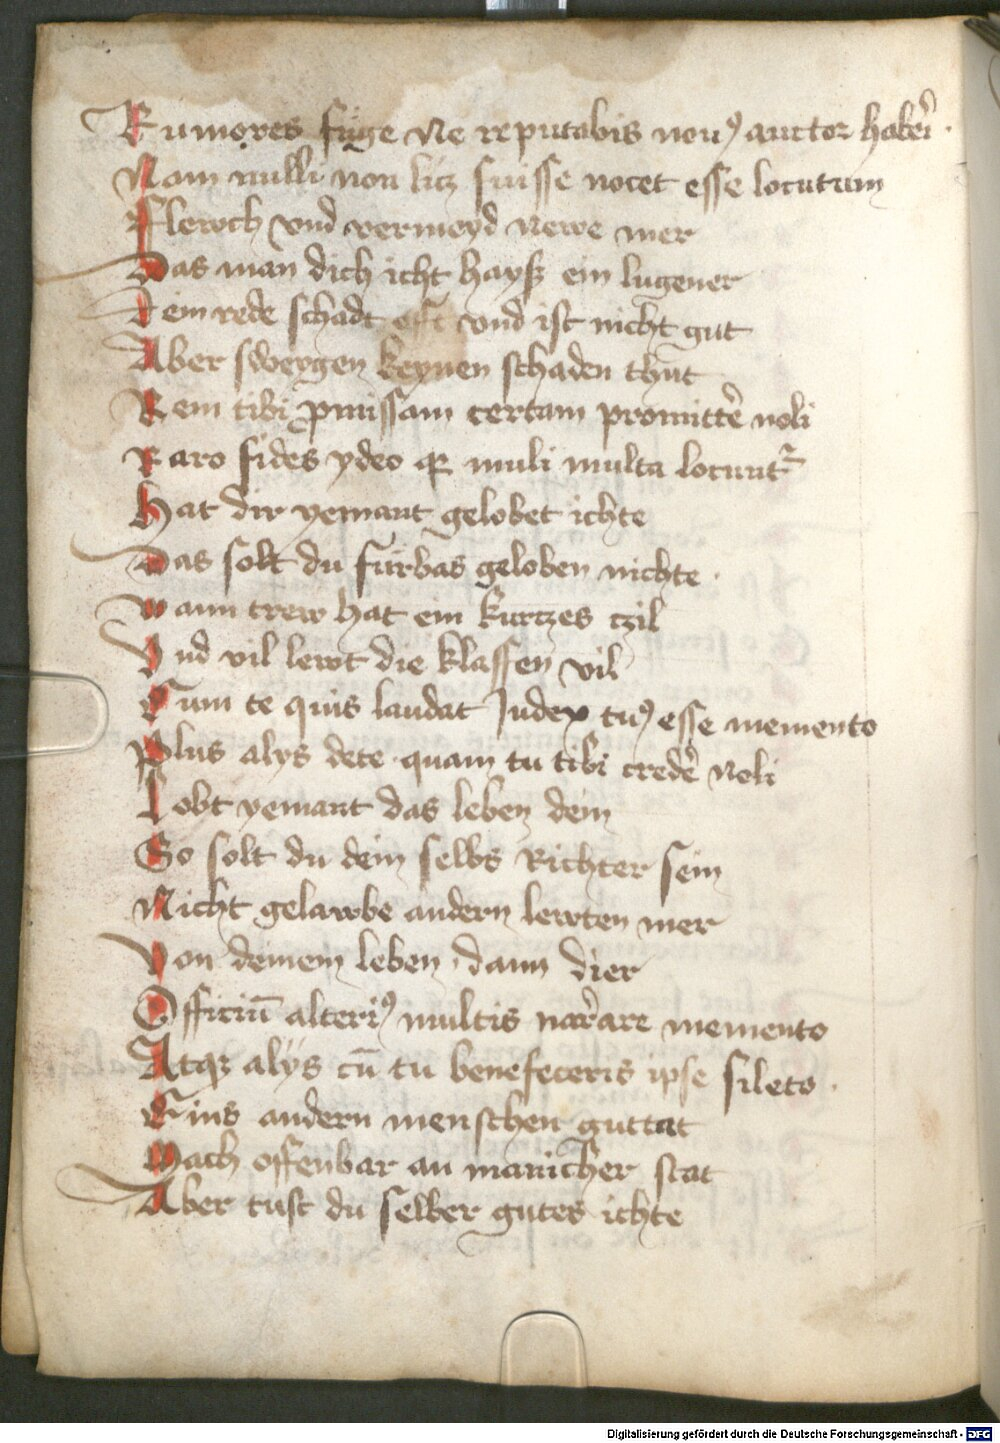 Rumores fuge ne reputabis nouꝰ auctor haberi ·
Nam nulli non licz suisse nocet esse locutum
Flewch vnd vermeyd newe mer
Das man dich icht hayß ein lugener
Dein rede schadt offt vnd ist nicht gut
Aber sweygen keynen schaden thut
Rem tibi ꝓmissam certam promitte᷑ noli
Raro fides ydeo qꝛ muli multa locunt᷑
Hat dir yemant gelobet ichte
Das solt du fürbas geloben nichte ·
Wann trew hat ein kurtzes tzil
Vnd vil lewt die klaffen vil
Cum te quis laudat Judex tuꝰ esse memento
Plus alys dete · quam tu tibi crede᷑ noli
Lobt yemant das leben dein
So solt du dein selbs Richter sein
Nicht gelawbe andern lewten mer
Von deinem leben · dann dier
Officiū alteriꝰ multis nar᷑are memento
Atqꝫ alÿs cū tu benefeceris ipse sileto ·
Eins andern menschen guttat
Mach offenbar an manicher stat
Aber tust du selber gutes ichte
Digitalisierung gefördert durch die Deutsche Forschungsgemeinschaft - DFG